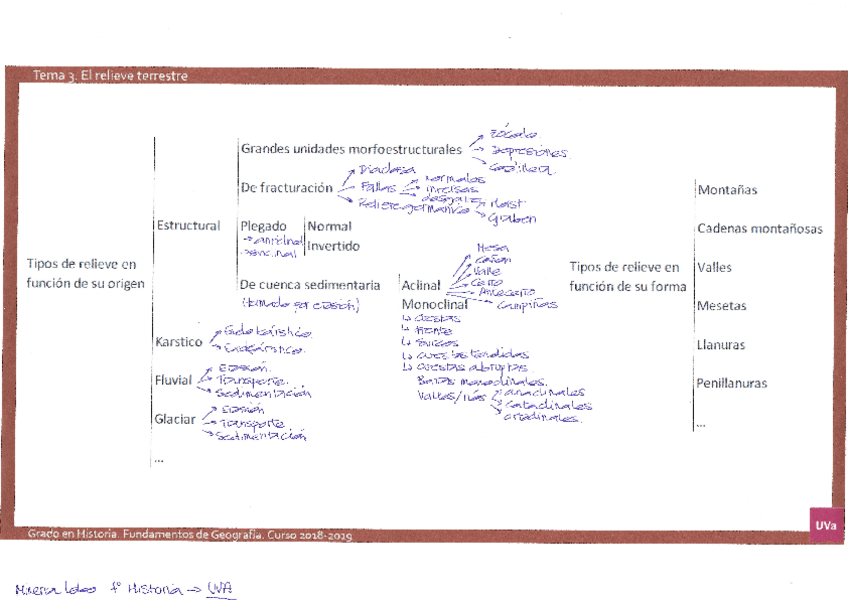 Tema 3. El relieve terrestre
Tipos de relieve en
función de su origen
Estructural
Grandes unidades morfoestructurales
Zócalo
Depresiones
Cordillera
De fracturación
Diaclasa
Fallas
normales
inversas
desgarre
Relieve germánico
Horst
Graben
Plegado
→ anticlinal
→ sinclinal
Normal
Invertido
De cuenca sedimentaria
(formado por erosión)
Aclinal
Mesa
Cañón
Valle
Cerro
Antecerro
Campiñas
Monoclinal
↳ Cuestas
↳ Frente
↳ Surcos
↳ cuestas tendidas
↳ cuestas abruptas
Barras monoclinales
Valles/ríos
anaclinales
Cataclinales
ortoclinales
Karstico
Exokárstico
Endokárstico
Fluvial
Erosión
Transporte
Sedimentación
Glaciar
Erosión
Transporte
Sedimentación
...
Tipos de relieve en
función de su forma
Montañas
Cadenas montañosas
Valles
Mesetas
Llanuras
Penillanuras
...
UVa
Grado en Historia. Fundamentos de Geografía. Curso 2018-2019
1º Historia → UVA